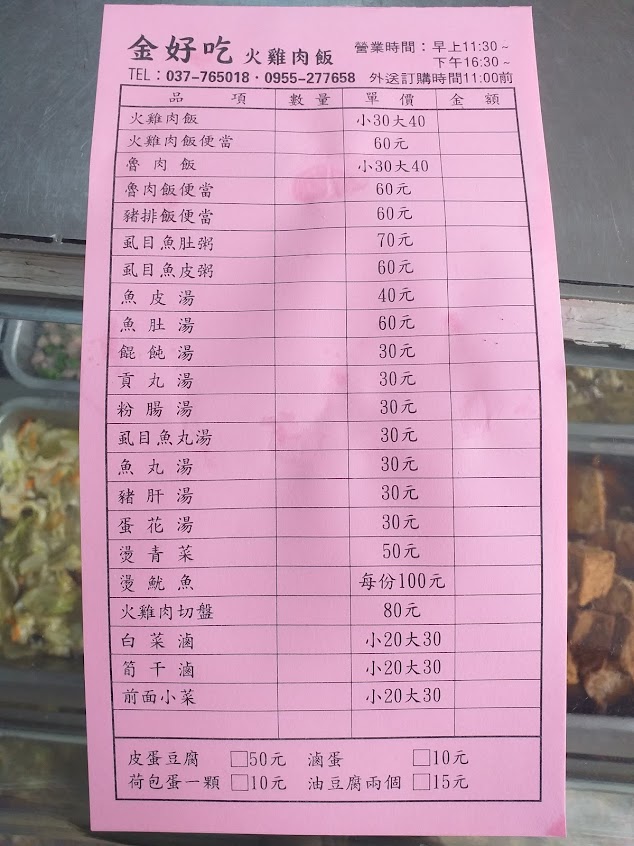 金好吃 火雞肉飯 營業時間：早上11:30~
下午16:30~
TEL：037-765018・0955-277658 外送訂購時間11:00前
品項 數量 單價 金額
火雞肉飯 小30大40
火雞肉飯便當 60元
魯肉飯 小30大40
魯肉飯便當 60元
豬排飯便當 60元
虱目魚肚粥 70元
虱目魚皮粥 60元
魚皮湯 40元
魚肚湯 60元
餛飩湯 30元
貢丸湯 30元
粉腸湯 30元
虱目魚丸湯 30元
魚丸湯 30元
豬肝湯 30元
蛋花湯 30元
燙青菜 50元
燙魷魚 每份100元
火雞肉切盤 80元
白菜滷 小20大30
筍干滷 小20大30
前面小菜 小20大30
皮蛋豆腐 □50元 滷蛋 □10元
荷包蛋一顆 □10元 油豆腐兩個 □15元